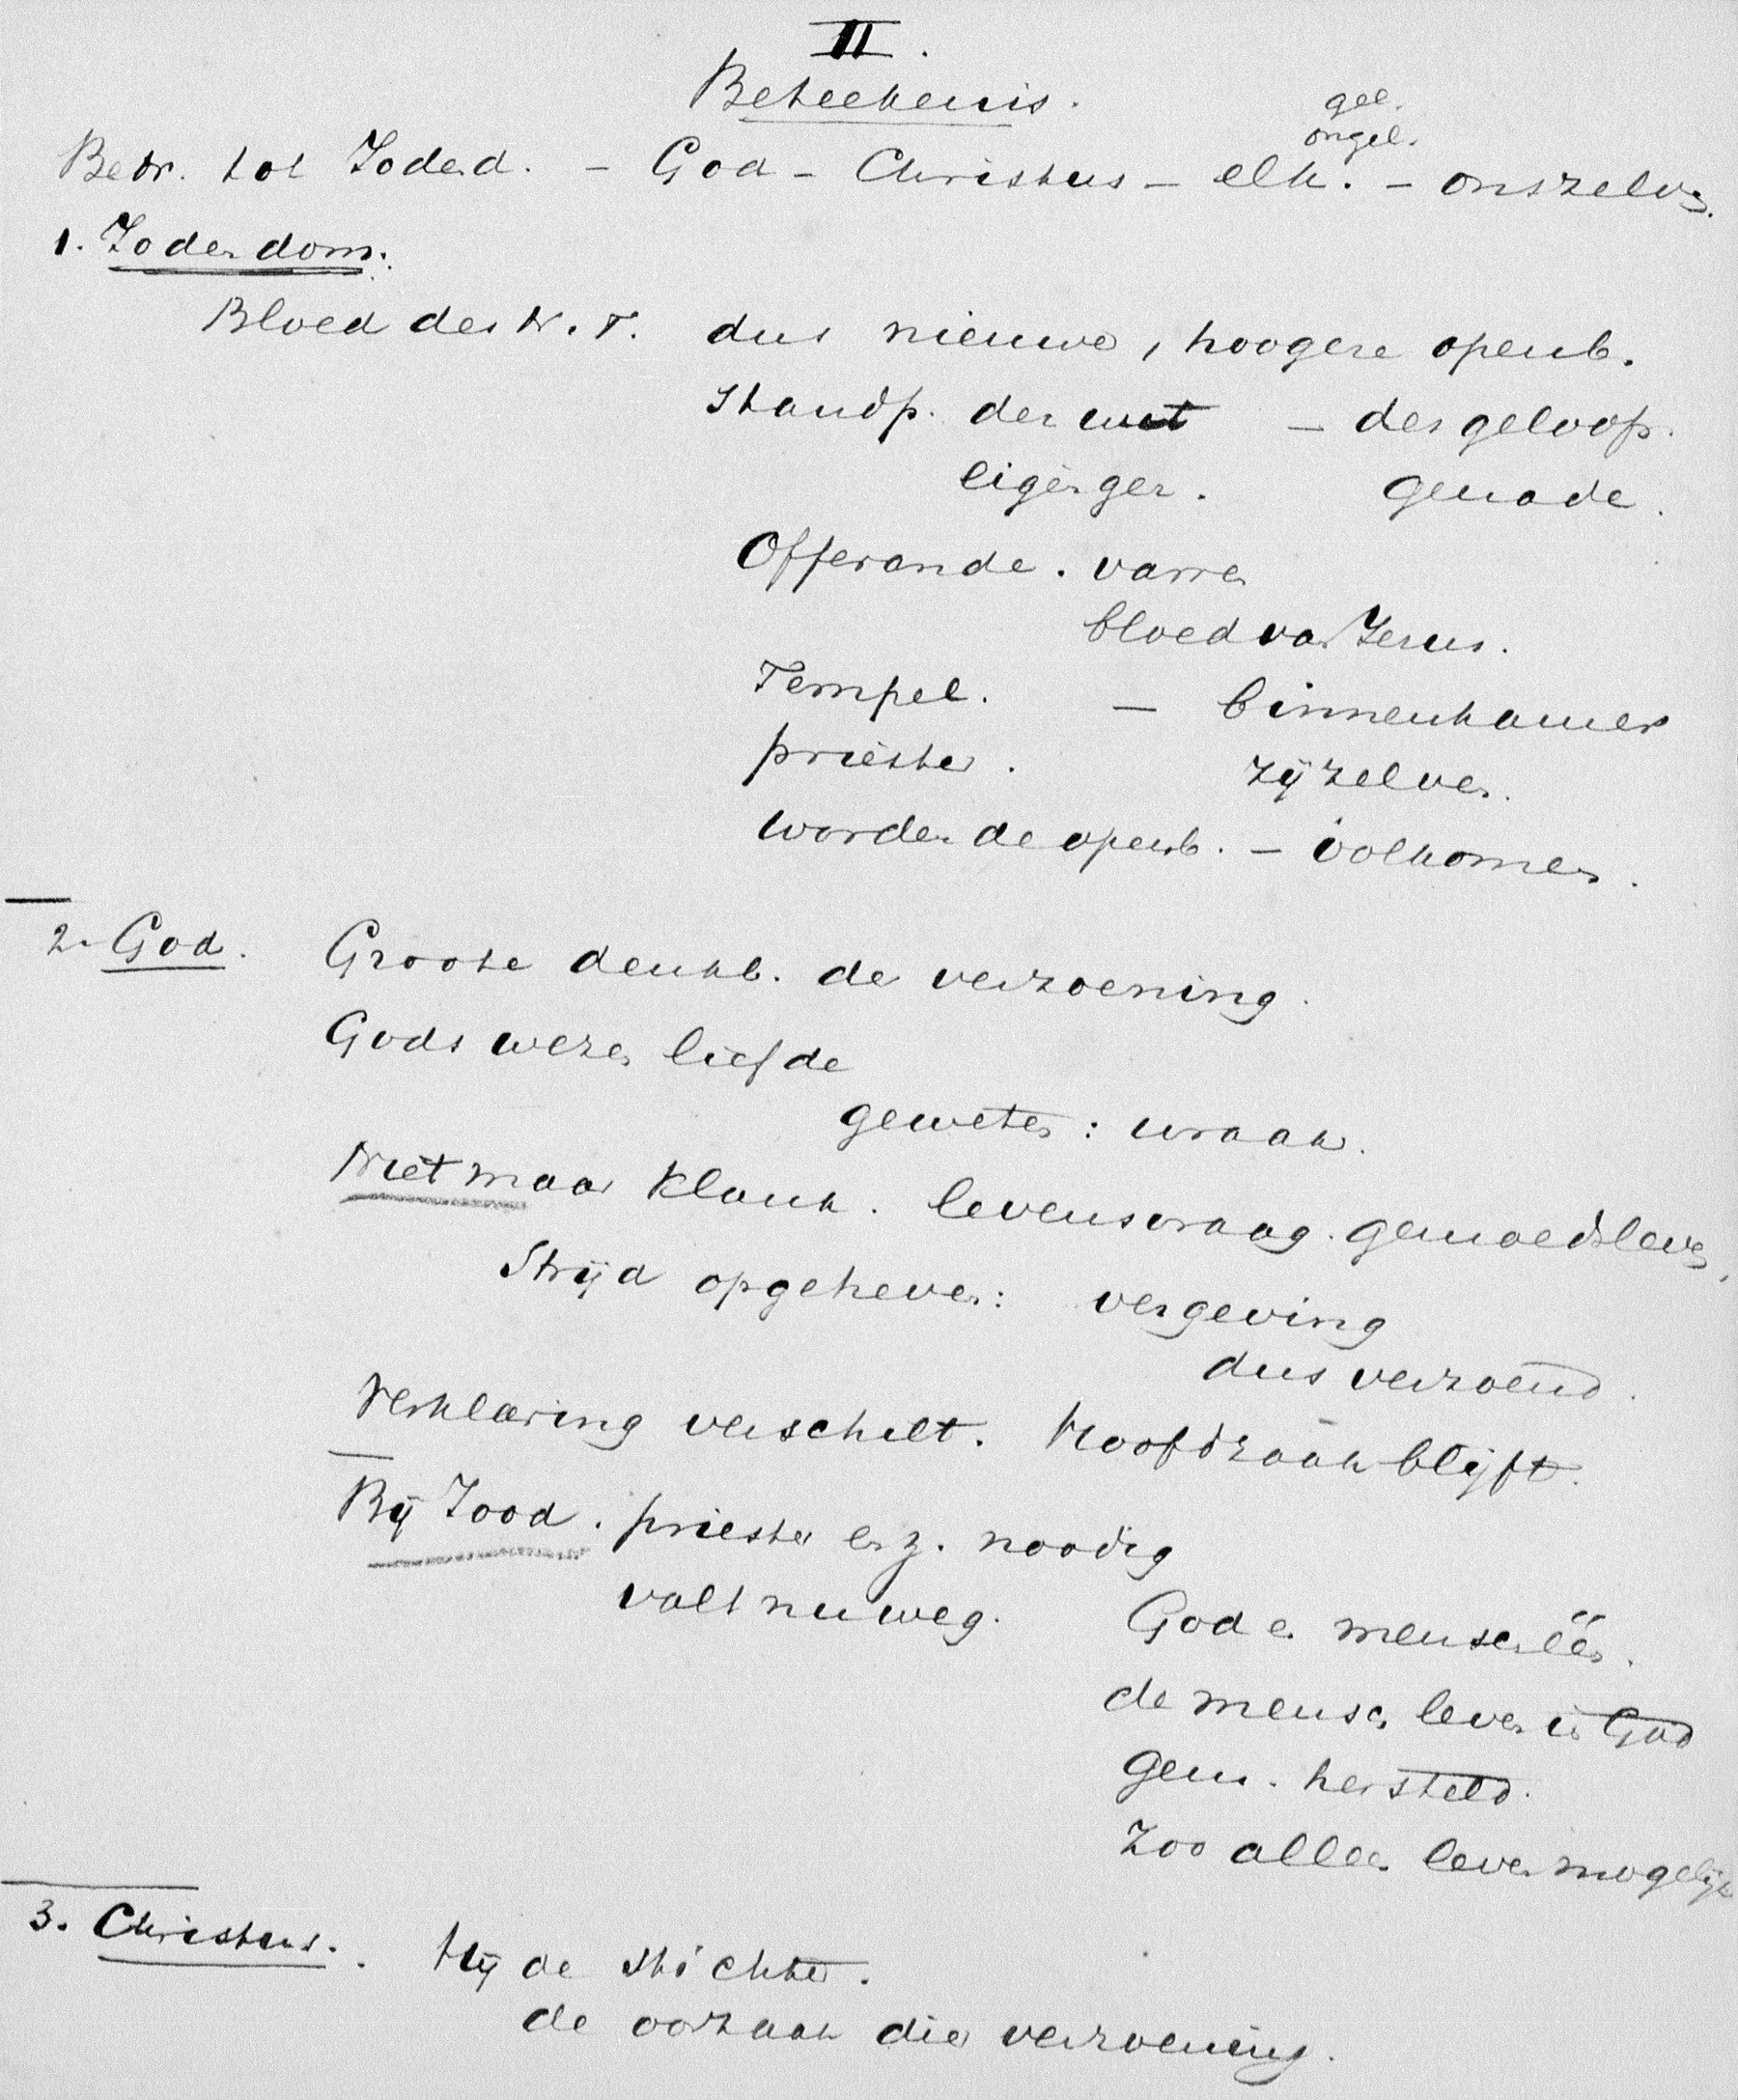 II.
Beteekenis.
gel.
ongel.
Betr. tot Jodend. - God - Christus - elk. - onszelven.
1. Jodendom.
Bloed des N. T. dus nieuwe, hoogere openb.
Standp. der wet - des geloofs.
eigen ger. genade.
Offerande. varren
bloed van Jezus.
Tempel. - binnenkamer
priester. zijzelven.
wordende openb. - volkomen.
2. God. Groote denkb. de verzoening.
Gods wezen liefde
geweten: wraak.
Niet maar klank. levensvraag. gemoedsleven,
Strijd opgeheven: vergeving
dus verzoend.
Verklaring verschilt. Hoofdzaak blijft.
Bij Jood. priester enz. noodig
valt nu weg. God en mensch één.
de mensch leven in God
gem. hersteld.
Zoo alleen leven mogelijk
3. Christus. Hij de stichter.
de oorzaak dier verzoening.